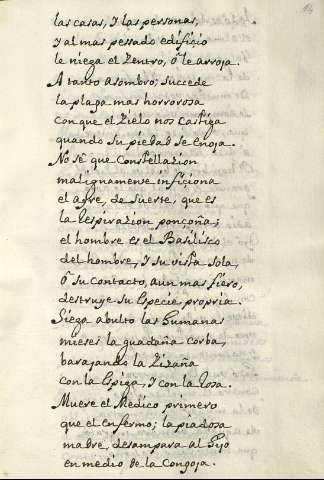 14
las casas, y las personas,
y al mas pessado edificio
le niega el Zentro, ô le arroja.
A tanto asombro, succede
la plaga mas horrorosa
con que el Zielo nos castiga
quando su piedad se enoja.
No sè que Constellazion
malignamente inficiona
el ayre, de suerte, que es
la respirazion ponçoña;
el hombre es el Basilisco
del hombre, y su vista sola,
ô su contacto, aun mas fiero,
destruye su Especie propria.
Siega abulto las humanas
mieses la guadaña corba,
barajando la Zizaña
con la Espiga, y con la rosa.
Muere el Medico primero
que el enfermo; la piadosa
madre, desampara al hijo
en medio de la Congoja.